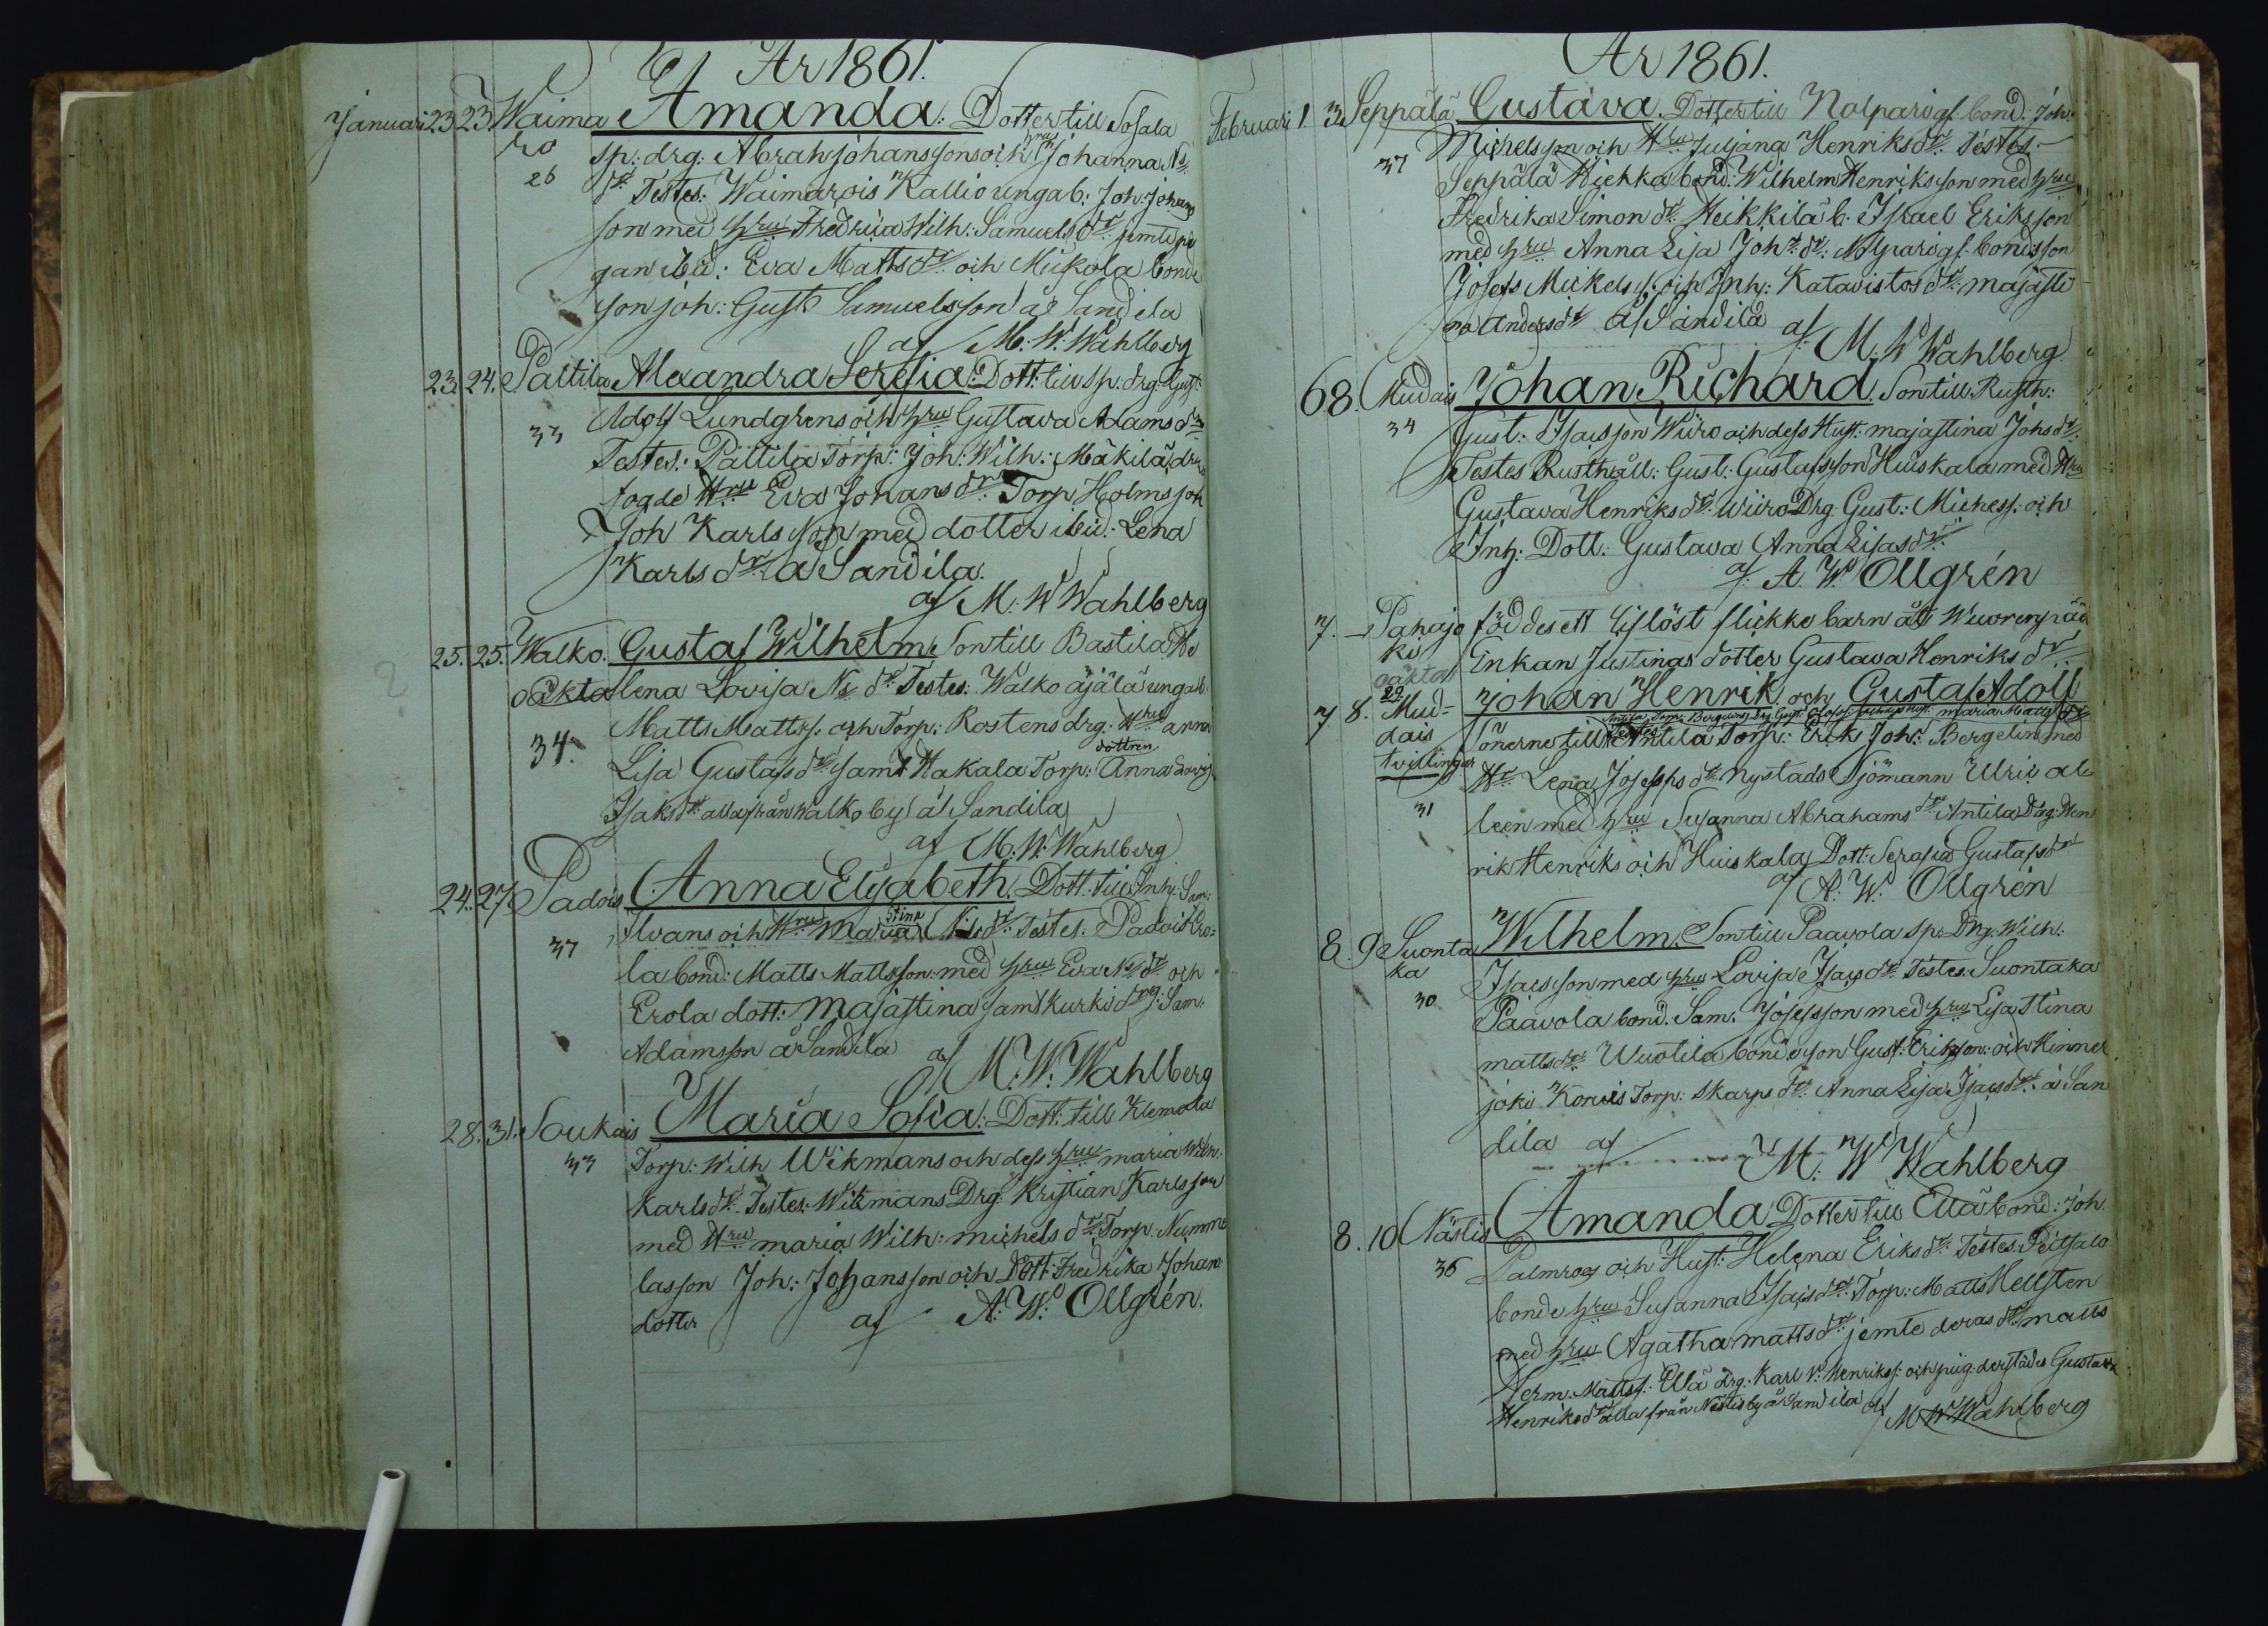 År 1861.
Januari 23 23 Waima Amanda. Dotter till Sosala
ro sp: drg: Abrah Johanssons och hrus Johanna Ns
26 dr. Testes: Waimarois Kallio unga b: Joh: Johans
son med hru Fredrica Wilh: Samuels dr: jemte pi
gan ibid: Eva Matts dr och Mickola bonde
son Joh: Gust Samuelsson åe Sandila
af M: W: Wahlberg
23. 24. Pattila Alexandra Serefia: Dott: till sp: drg. Gust:
Adolf Lundgrens och hru Gustava Adams dr
33 Testes: Pattila Torp: Joh: Wilh: Mäkilä,
fogde Hru Eva Johans dr: Torp Holms Joh
Joh Karlsson med dotter ibid: Lena
Karls dr a Sandila.
af M: W Wahlberg
25. 25. Walko. Gustaf Wilhelm. Son till Bastila
oäkta lena Lovisa Ns dr Testes: Walko äjälä unga b
Matts Matts s. och Torp: Rostens drg. Hru anna
34. Lisa Gustafs dr: samt Hakala Torp: dottren Anna Lovis
Isaks dr alla från Walko by) ål Sandila
af M: W: Wahlberg
24. 27. Padois Anna Elisabeth. Dott. till Inh: Sam:
37 Ilvans och Hru Maria Stina Ns dr: Testes: Padois Ero=
la bond: Matts Mattsson: med hru Eva Ns dr och
Erola dott: Majastina samt Kurki dreg: Sam.
Adamsson å Sandila af M: W: Wahlberg
28. 31. Soukais Maria Sofia: Dott: till Klemola
33 Torp: Wilh Wikmans och dess hru maria Wilh:
Karls dr. Testes: Wikmans Drg: Kristian Karlsson
med Hru maria Wilh: michels dr: Torp: Numme
lasson Joh: Johansson och Dott Fredrika Johans
dotter af A: W: Ollgrén.
År 1861.
Februari 1. 3. Seppälä Gustava. Dotter till Nolparigs. bond: Joh:
37 Michelsson och Hru Juljana Henriks dr: Testes:
Seppälä Hiehka bond: Wilhelm Henriksson med hru
Fredrika Simon dr: Heikkilä b: Israel Eriksson
med hru Anna Lisa Joh: dr: Nolparigs. bondsson
Josefs Mickels s: och Inh: Katavistos dr: majasti
na Anders dr å Sandila af M. W Wahlberg
6 8. Mudais Johan Richard. Son till Rusth:
34 Gust: Isacsson Wiiro och dess Hust: majastina Johs dr:
Testes Rusthåll: Gust: Gustafsson Huiskala med Hru
Gustava Henriks dr: Wiiro Drg: Gust: Michels s: och
Inh: Dott: Gustava Anna Lisas dr:
af A. W. Ollgrén
7. – Pahajo föddes ett liflöst flickebarn åt Wuorenpää
ki Enkan Justinas dotter Gustava Henriks dr
oäkta
7 8. 29 Mu= Johan Henrik och Gustaf Adolf
dais Sönerne till Testes Antila Torp: Erik Joh: Bergelin med
tvillingar Hr Lena Josephs dr Nystads Sjömann Ulric al
31 leen med hru Susanna Abrahams dr Antila Drg: Hen
rik Henriks och Huiskala Dott: Serafia Gustafs dr
af A. W: Ollgrén
8. 9 Suonta Wilhelm. Son till Paavola sp: Drg: Wilh:
ka Isacsson med hru Lovisa Isacs dr Testes: Suontaka
30 Paavola bond. Sam. Josefsson med hru Lisa Stina
matts dr: Wuotila bondeson Gust: Eriksson: och Hinner
joki Korvis Torp: skarps dr: Anna Lisa Isacs dr: å San
dila af M: W Wahlberg
8. 10 Nästis Amanda Dotter till Ellä bond: Joh.
36 Palmroos och Hust: Helena Eriks dr: Testes: Peitsalo
bonde hru Susanna Isacs dr: Torp: Matts Hellsten
med hru Agatha matts dr jemte deras dr matts
Herm: Matts s: Ellä drg: Karl W: Henriks s: och pig: derstädes Gustava
Henriks dr alla från Nästis by å Sandila af M W Wahlberg